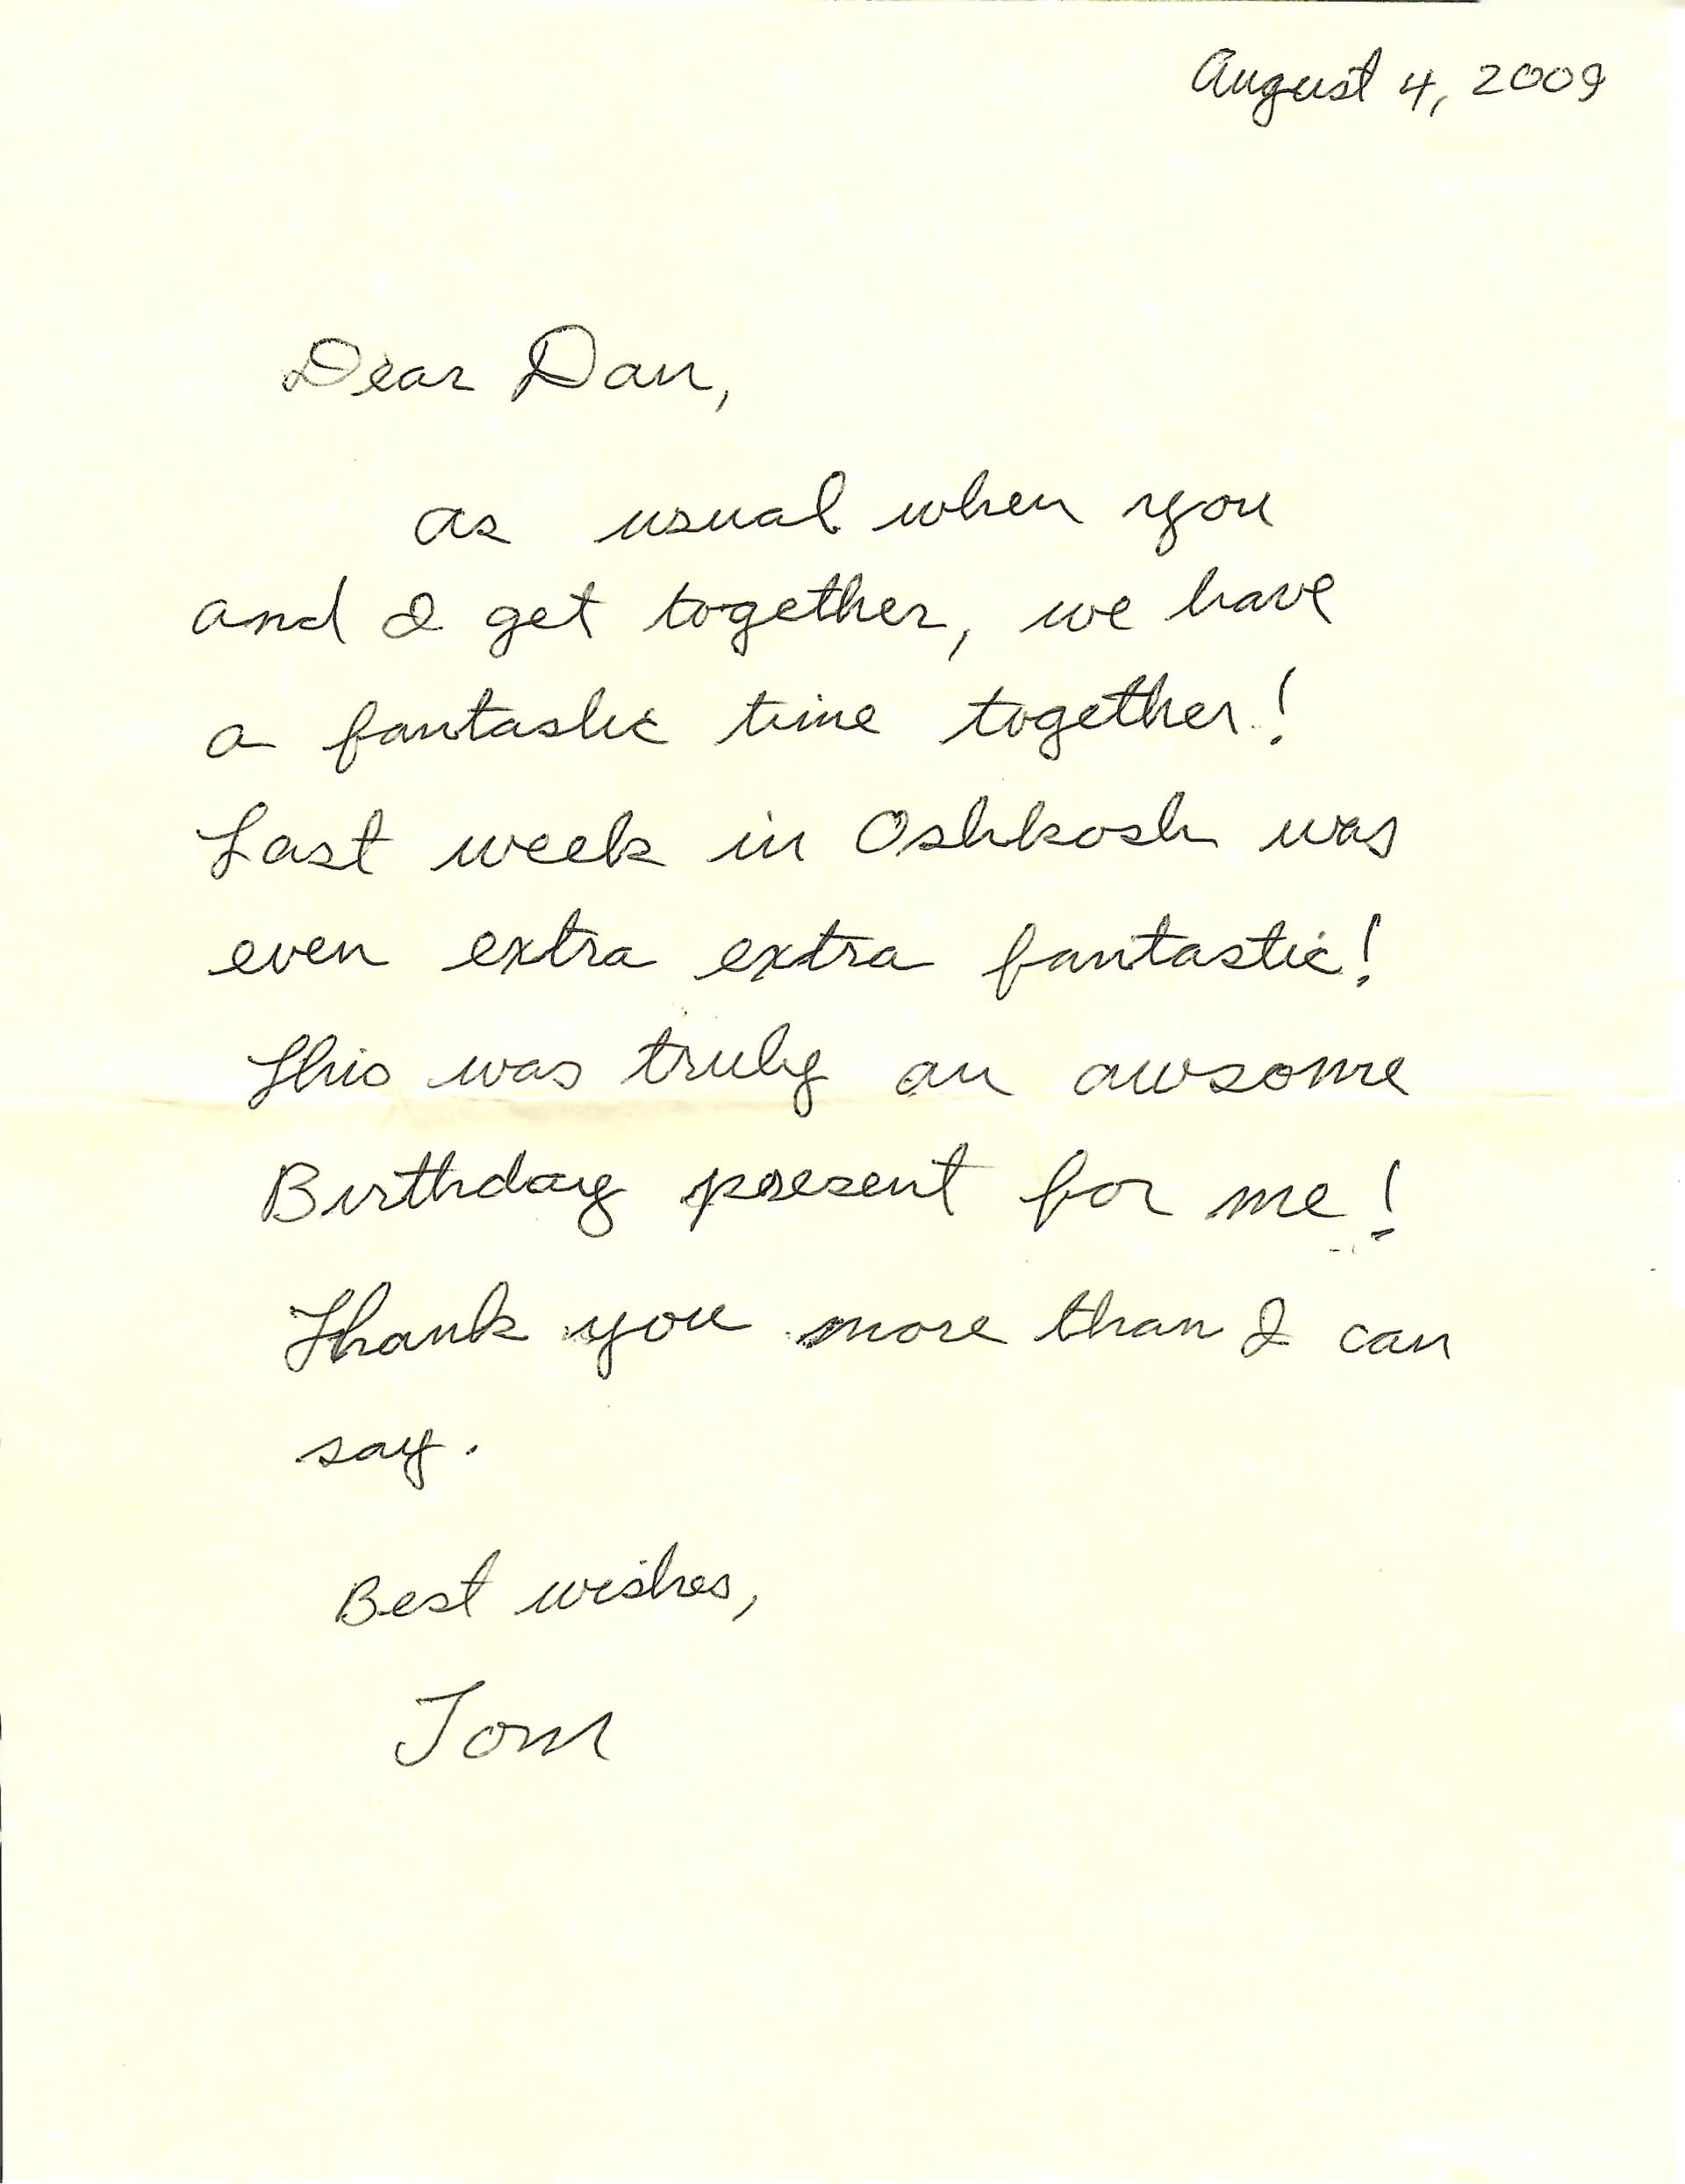 August 4, 2009
Dear Dan,
As usual when you
and I get together, we have
a fantastic time together!
Last week in Oshkosh was
even extra extra fantastic!
This was truly an awsome
Birthday present for me!
Thank you more than I can
say.
Best wishes,
Tom